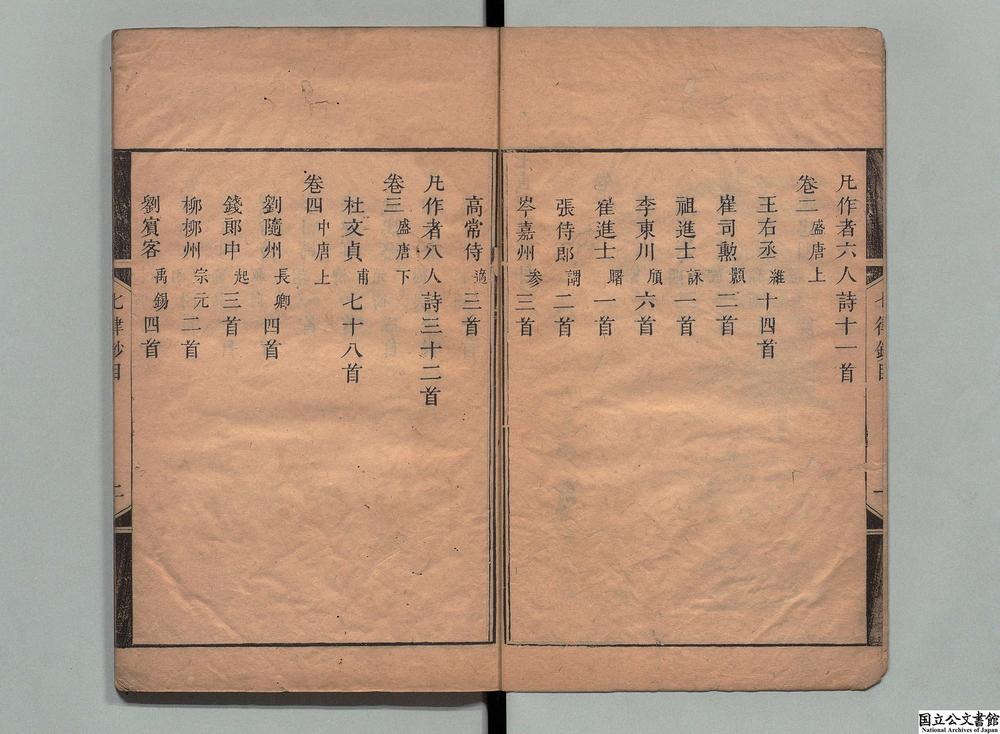 凡作者六人詩十一首
卷二 盛唐上
王右丞 維 十四首
崔司勲 顥 二首
祖進士 詠 一首
李東川 頎 六首
崔進士 曙 一首
張侍郎 謂 二首
岑嘉州 參 三首
高常侍 適 三首
凡作者八人詩三十二首
卷三 盛唐下
杜文貞 甫 七十八首
卷四 中唐上
劉隨州 長卿 四首
錢郎中 起 三首
柳柳州 宗元 二首
劉賓客 禹錫 四首
七律鈔目
二
国立公文書館
National Archives of Japan